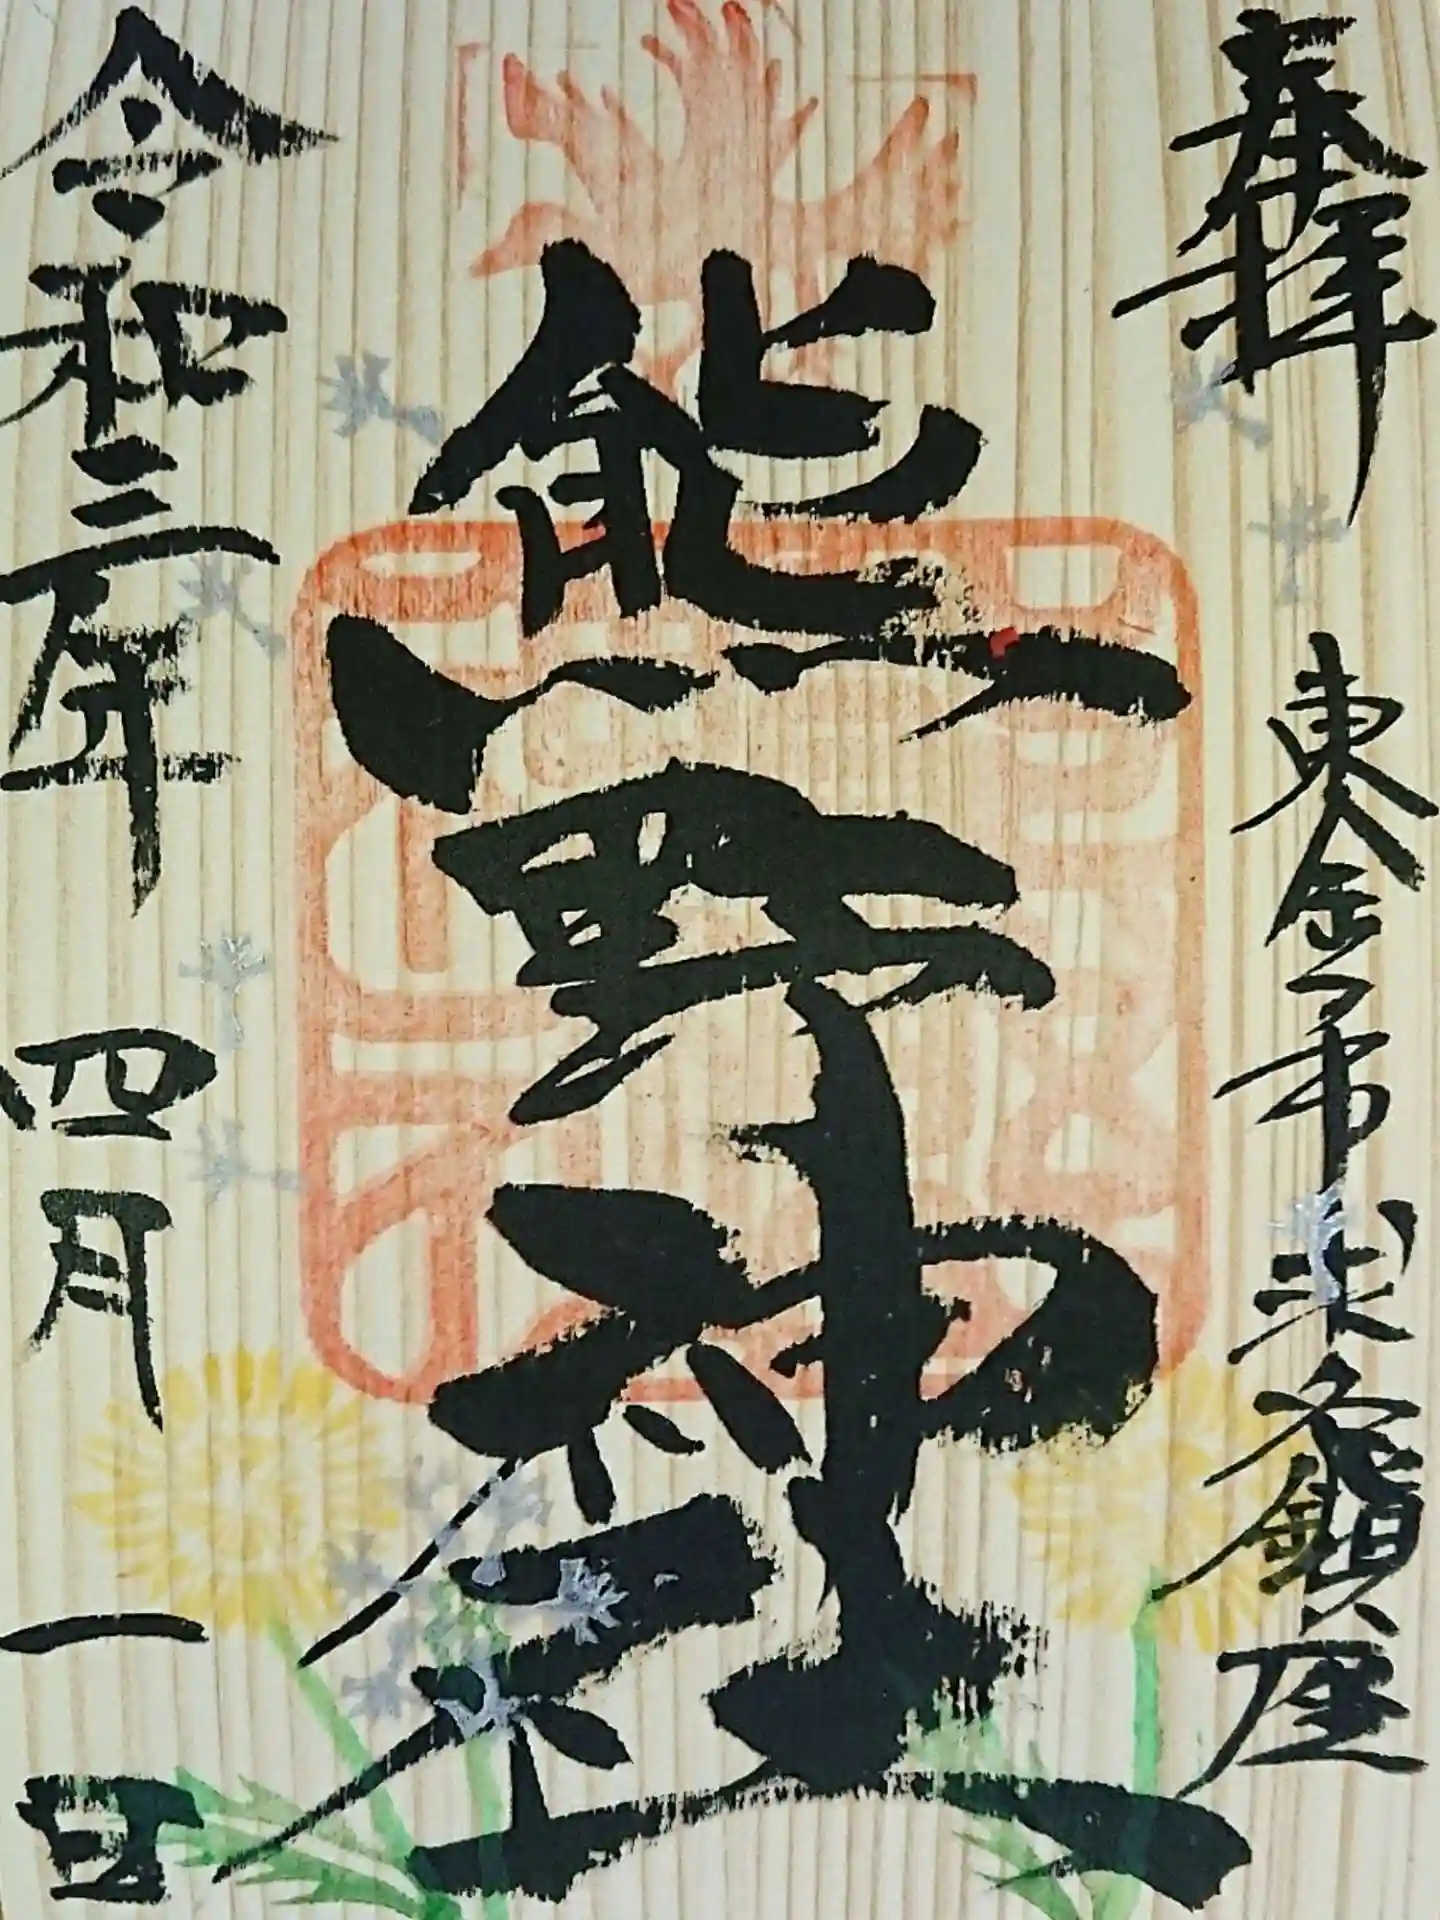 奉拝
東金市求名鎮座
熊野神社
令和三年 四月 一日